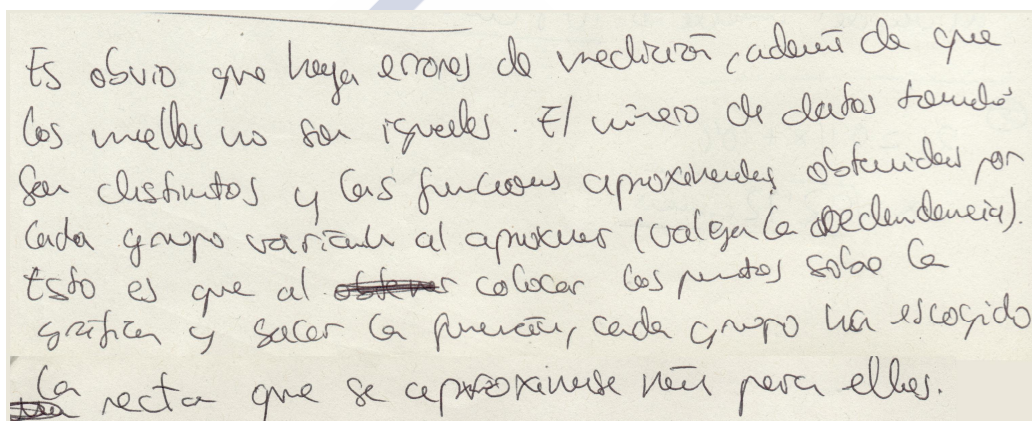 Es obvio que haya errores de medición, además de que
los muelles no son iguales. El número de datos tomados
son distintos y las funciones aproximadas obtenidas por
cada grupo variarán al aproximar (valga la redundancia).
Esto es que al colocar los puntos sobre la
gráfica y sacar la función, cada grupo ha escogido
la recta que se aproximase más para ellos.